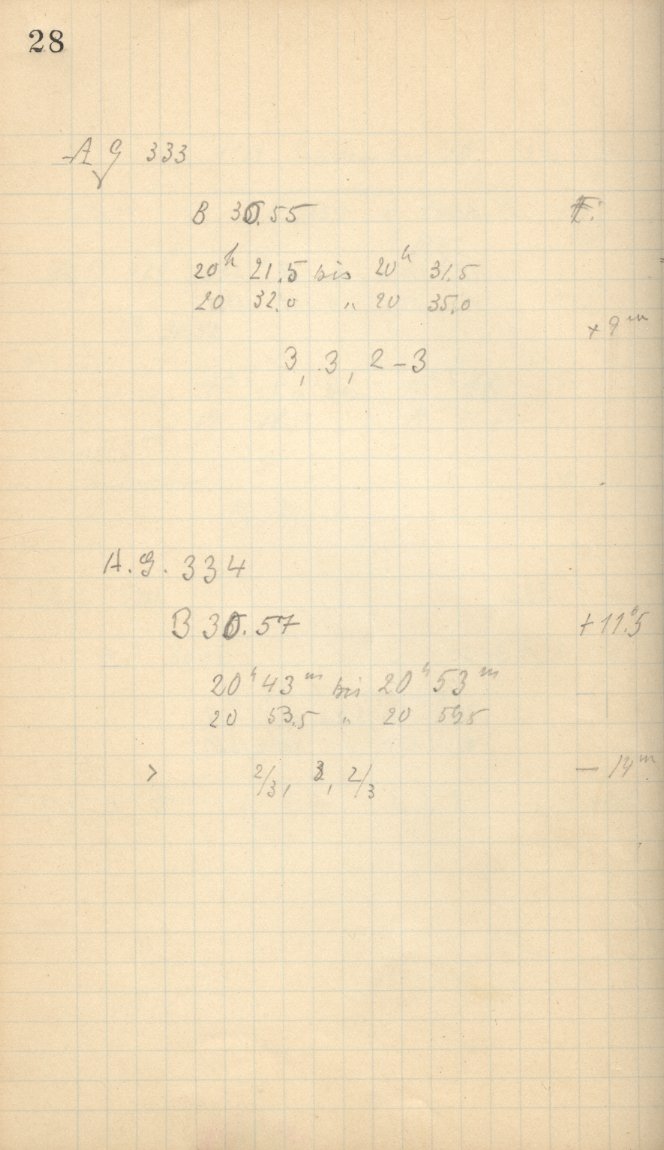 28
A G 333
B 30.55
20h 21.5 bis 20h 31.5
20 32.0 " 20 35.0
+ 9m
3, 3, 2-3
A.G. 334
B 30.57 +11.5
20h 43m bis 20h 53m
20 53.5 " 20
> 2/3, 3, 2/3 - 14m